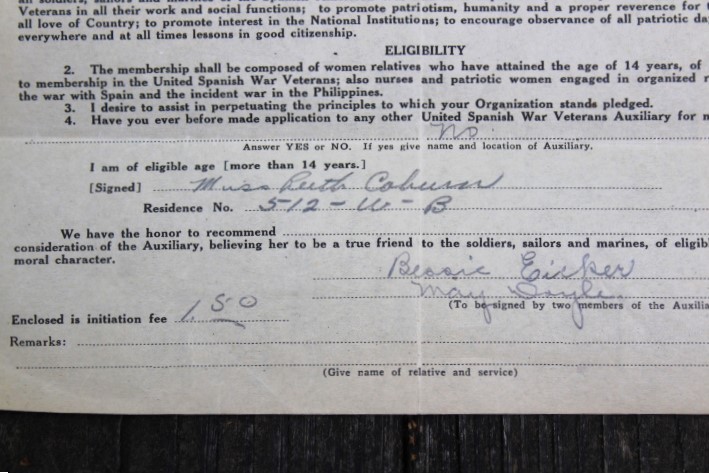 all soldiers, sailors and marines of the Spanish
Veterans in all their work and social functions; to promote patriotism, humanity and a proper reverence for
all love of Country; to promote interest in the National Institutions; to encourage observance of all patriotic da
everywhere and at all times lessons in good citizenship.
ELIGIBILITY
2. The membership shall be composed of women relatives who have attained the age of 14 years, of
to membership in the United Spanish War Veterans; also nurses and patriotic women engaged in organized r
the war with Spain and the incident war in the Philippines.
3. I desire to assist in perpetuating the principles to which your Organization stands pledged.
4. Have you ever before made application to any other United Spanish War Veterans Auxiliary for m
No
Answer YES or NO. If yes give name and location of Auxiliary.
I am of eligible age [more than 14 years.]
[Signed] Miss Ruth Coburn
Residence No. 512-W-B
We have the honor to recommend
consideration of the Auxiliary, believing her to be a true friend to the soldiers, sailors and marines, of eligib
moral character.
Bessie Eicker
May Doyle
(To be signed by two members of the Auxilia
Enclosed is initiation fee 1.50
Remarks:
(Give name of relative and service)